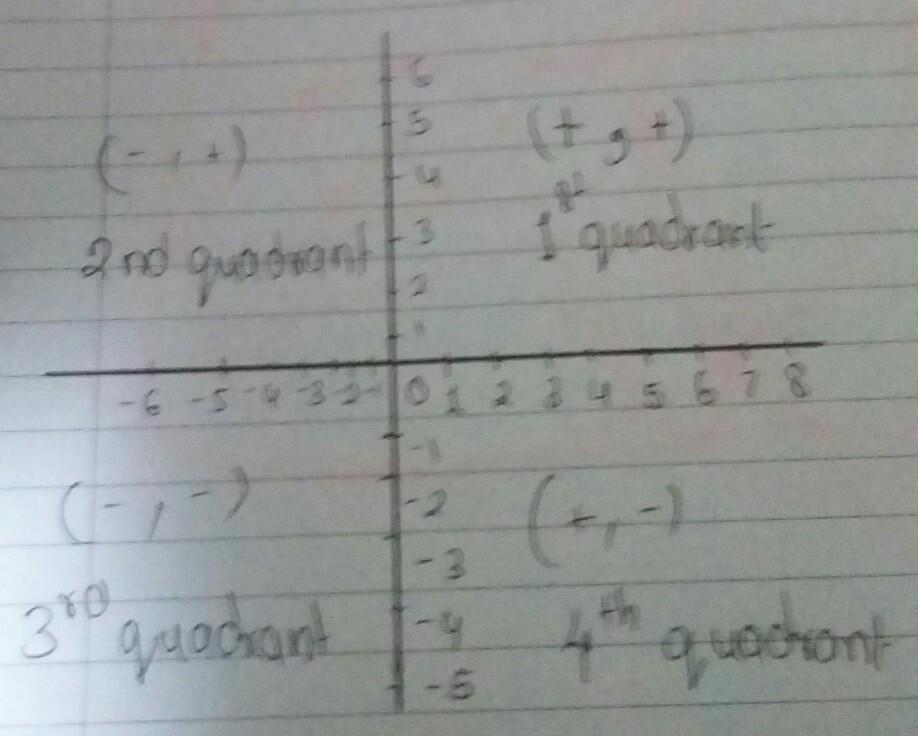 6
5
(-, +) (+, +)
4
1st quadrant
2nd quadrant 3
2
1
-6 -5 -4 -3 -2 -1 0 1 2 3 4 5 6 7 8
-1
(-, -) -2 (+, -)
-3
3rd quadrant -4 4th quadrant
-5